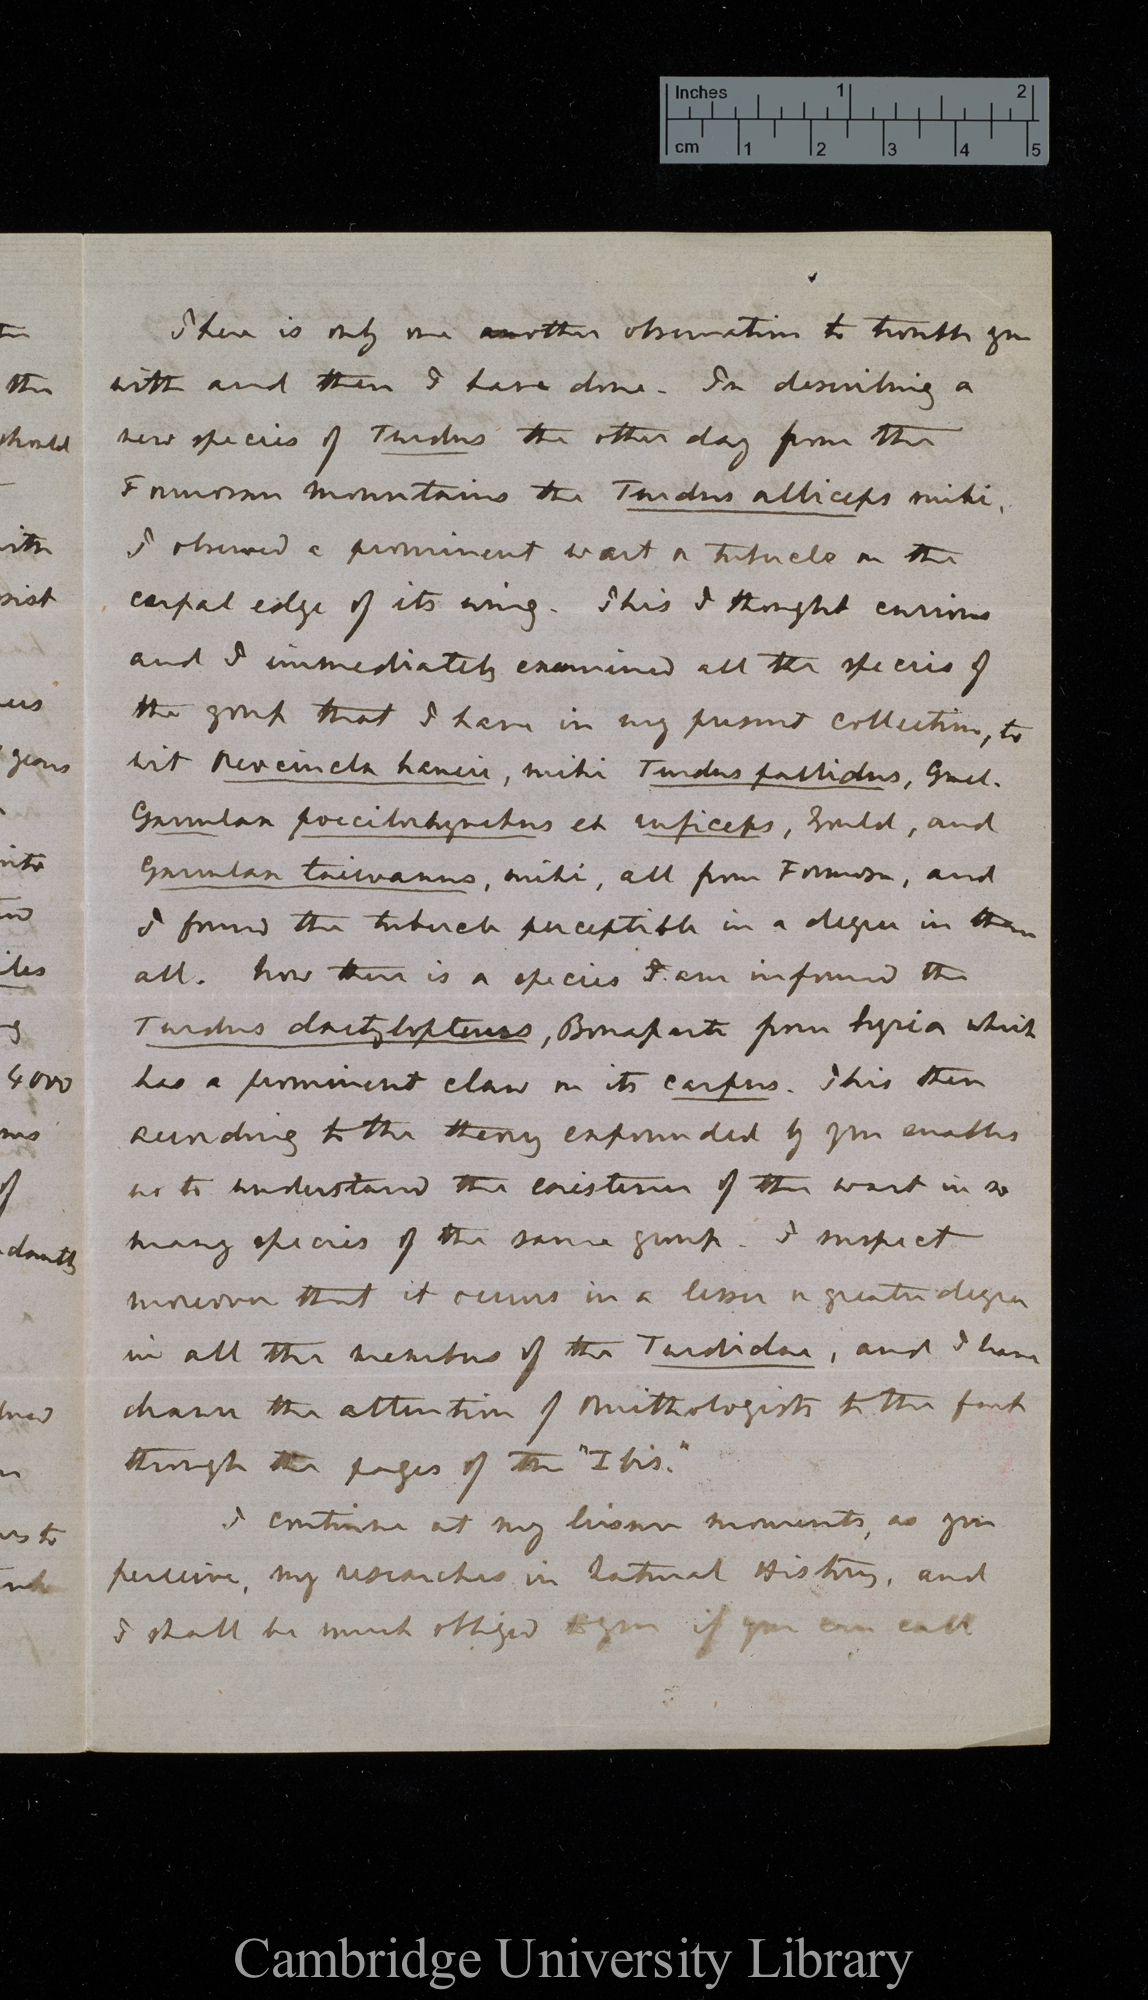 Inches 1 2
cm 1 2 3 4 5
There is only one another observation to trouble you
with and then I have done. In describing a
new species of Turdus the other day from the
Formosan mountains the Turdus albiceps mihi,
I observed a prominent wart or tubercle on the
carpal edge of its wing. This I thought curious
and I immediately examined all the species of
the group that I have in my present collection, to
wit Oreocincla hancii, mihi Turdus pallidus, Gmel.
Garrulax poecilorhynchus et ruficeps, Gould, and
Garrulax taivanus, mihi, all from Formosa, and
I found the tubercle perceptible in a degree in them
all. Now there is a species I am informed the
Turdus dactylopterus, Bonaparte from Syria which
has a prominent claw on its carpus. This then
according to the theory expounded by you enables
us to understand the existence of the wart in so
many species of the same group. I suspect
moreover that it occurs in a lesser or greater degree
in all the members of the Turdidae, and I have
drawn the attention of Ornithologists to the fact
through the pages of the "Ibis."
I continue at my leisure moments, as you
perceive, my researches in Natural History, and
I shall be much obliged to you if you can call
the
should
sist
4000
of
Cambridge University Library